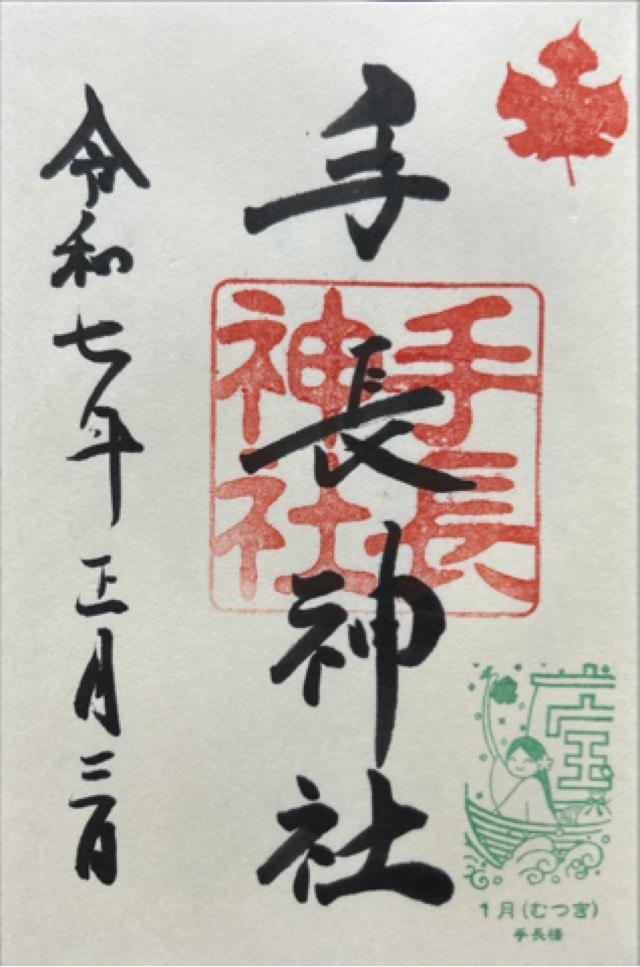 手長神社
手長
神社
令和七年正月三日
1月(むつ宮)
手長様